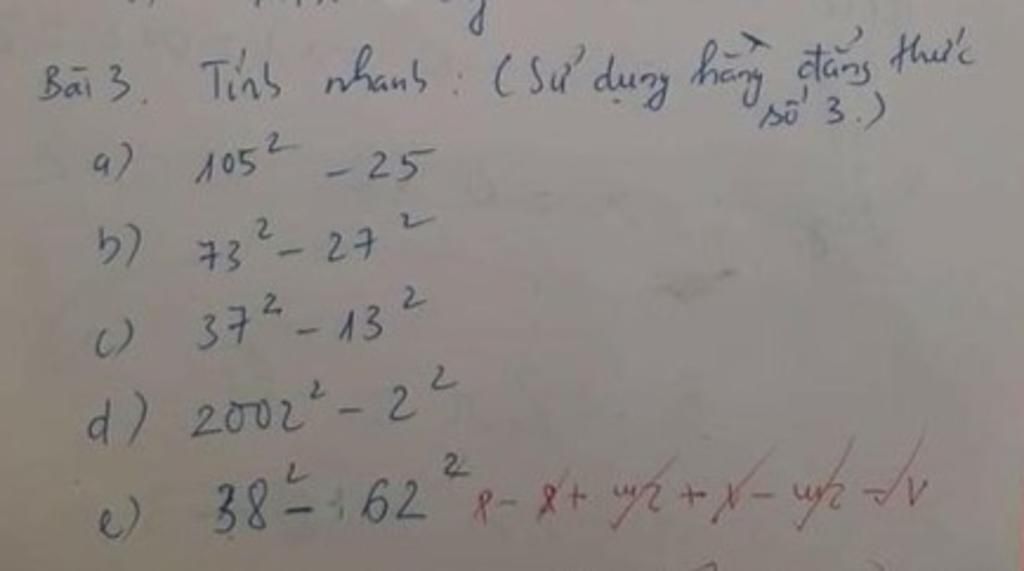 Bài 3. Tính nhanh : (Sử dụng hằng đẳng thức
số 3.)
a) 105² - 25
b) 73² - 27²
c) 37² - 13²
d) 2002² - 2²
e) 38² - 62²